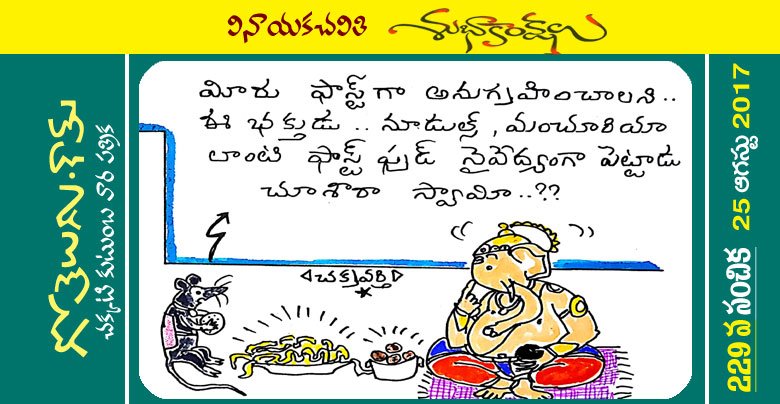 వినాయకచవితి శుభాకాంక్షలు
గోతెలుగు.కామ్
చక్కని కుటుంబ వార పత్రిక
మీరు ఫాస్ట్ గా అనుగ్రహించాలని..
ఈ భక్తుడు.. నూడుల్స్, మంచూరియా
లాంటి ఫాస్ట్ ఫుడ్ నైవేద్యంగా పెట్టాడు
చూశారా స్వామీ..??
చక్రవర్తి
229 వ సంచిక 25 ఆగస్టు 2017